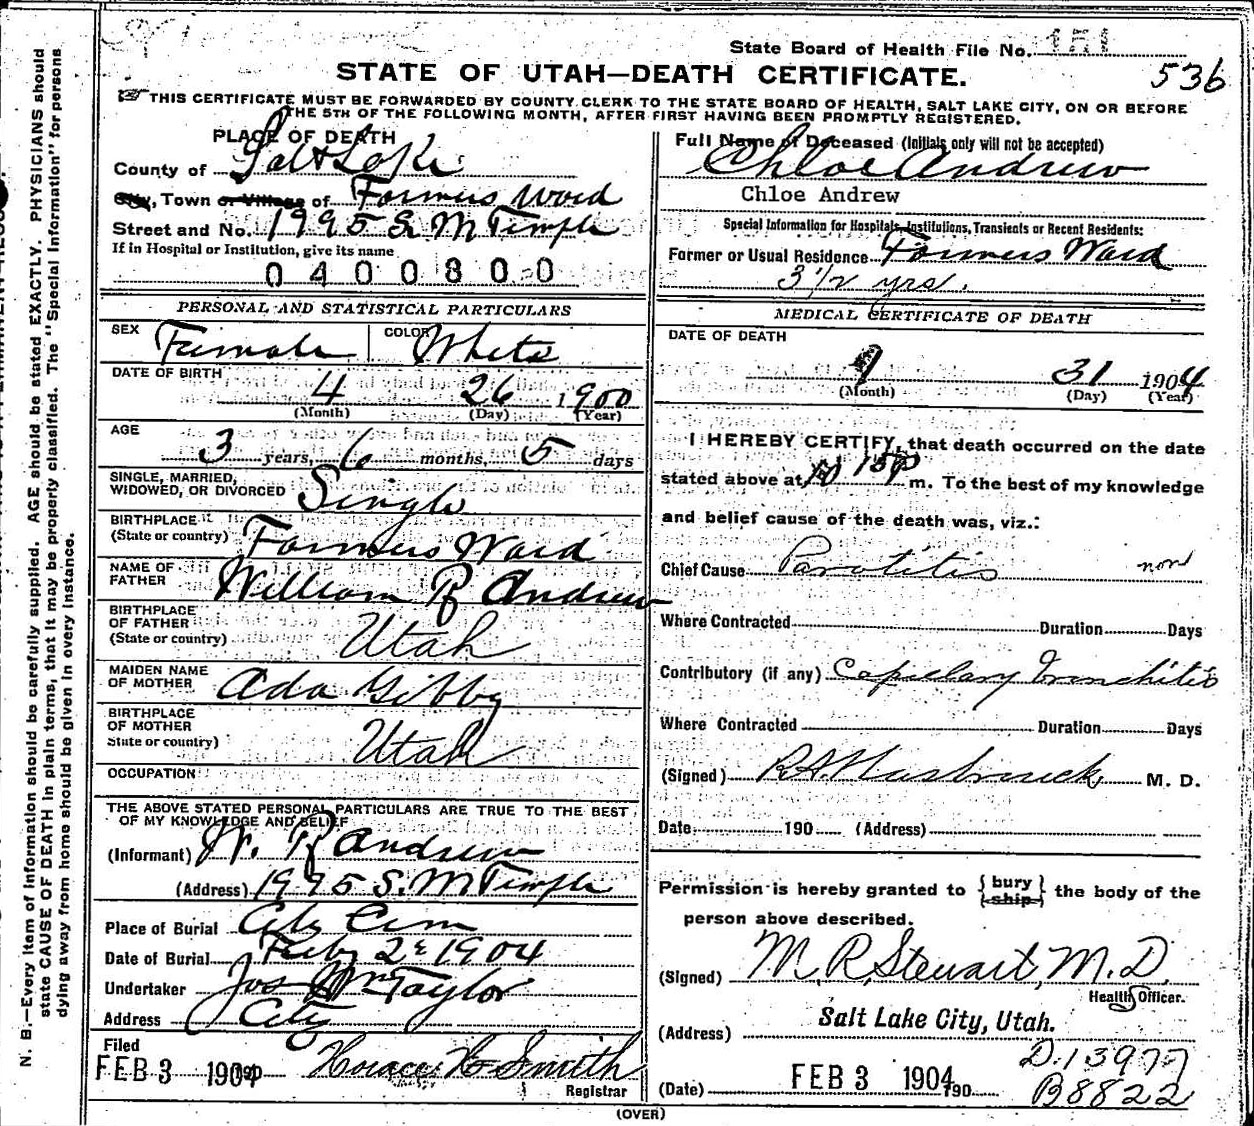 State Board of Health File No. 151
536
STATE OF UTAH—DEATH CERTIFICATE.
THIS CERTIFICATE MUST BE FORWARDED BY COUNTY CLERK TO THE STATE BOARD OF HEALTH, SALT LAKE CITY, ON OR BEFORE
THE 5TH OF THE FOLLOWING MONTH, AFTER FIRST HAVING BEEN PROMPTLY REGISTERED.
PLACE OF DEATH
County of Salt Lake
City, Town or Village of Farmers Ward
Street and No. 1995 S. M Temple
If in Hospital or Institution, give its name
0400800
Full Name of Deceased (Initials only will not be accepted)
Chloe Andrew
Chloe Andrew
Special Information for Hospitals, Institutions, Transients or Recent Residents:
Former or Usual Residence Farmers Ward
3 1/2 yrs.
PERSONAL AND STATISTICAL PARTICULARS
SEX Female COLOR White
DATE OF BIRTH
4 26 1900
(Month) (Day) (Year)
AGE
3 years, 6 months, 5 days
SINGLE, MARRIED,
WIDOWED, OR DIVORCED Single
BIRTHPLACE
(State or country) Farmers Ward
NAME OF
FATHER William R Andrew
BIRTHPLACE
OF FATHER
(State or country) Utah
MAIDEN NAME
OF MOTHER Ada Gibby
BIRTHPLACE
OF MOTHER
State or country) Utah
OCCUPATION
THE ABOVE STATED PERSONAL PARTICULARS ARE TRUE TO THE BEST
OF MY KNOWLEDGE AND BELIEF
(Informant) W. R Andrew
(Address) 1995 S. M Temple
Place of Burial City Cem
Date of Burial Feby 2 1904
Undertaker Jos Wm Taylor
Address City
Filed
FEB 3 1904 Horace H Smith
Registrar
MEDICAL CERTIFICATE OF DEATH
DATE OF DEATH
1 31 1904
(Month) (Day) (Year)
I HEREBY CERTIFY, that death occurred on the date
stated above at 10 15 P m. To the best of my knowledge
and belief cause of the death was, viz.:
Chief Cause Parotitis
Where Contracted Duration Days
Contributory (if any) Capillary Bronchitis
Where Contracted Duration Days
(Signed) R.A. Hasbrouck M. D.
Date 190 (Address)
Permission is hereby granted to { bury ship } the body of the
person above described.
(Signed) M. R. Stewart, M.D.
Health Officer.
Salt Lake City, Utah.
(Address)
D.13977
(Date) FEB 3 1904 190
B8822
(OVER)
N. B.—Every item of information should be carefully supplied. AGE should be stated EXACTLY. PHYSICIANS should
state CAUSE OF DEATH in plain terms, that it may be properly classified. The "Special Information" for persons
dying away from home should be given in every instance.